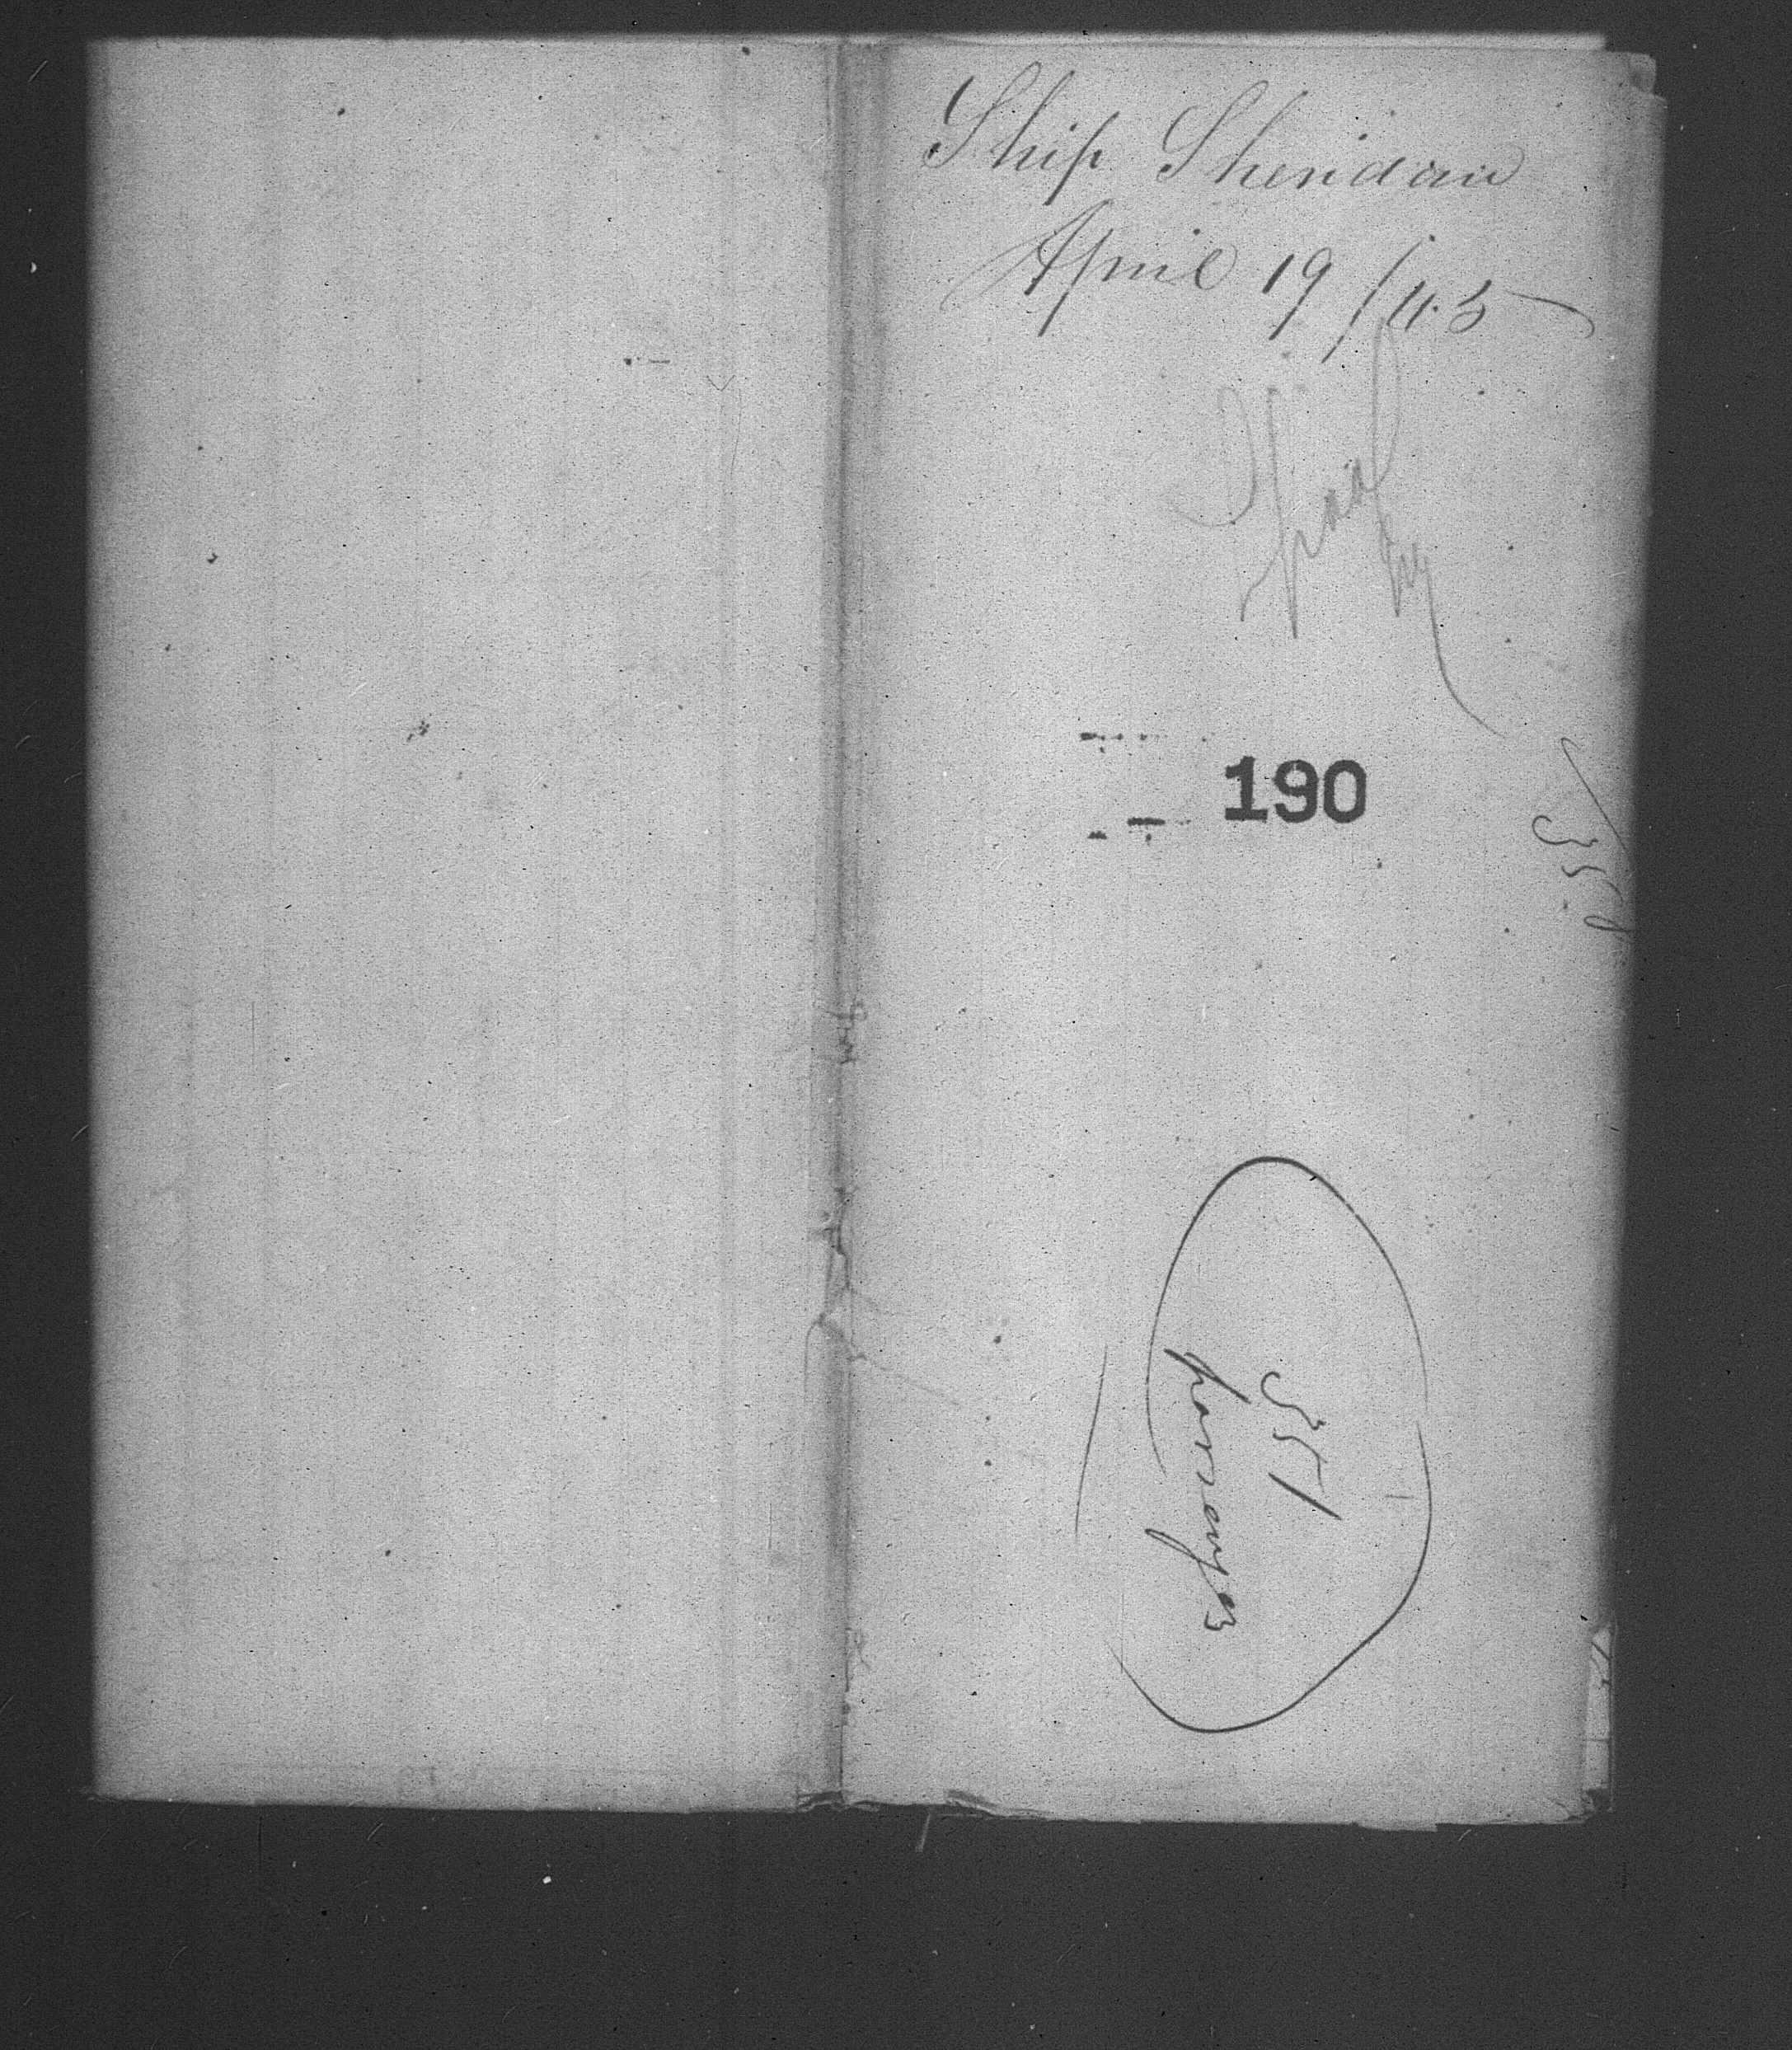 Ship Sheridan
April 19/43
190
351
passengers